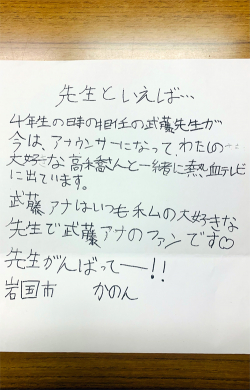 先生といえば…
4年生の時の担任の武藤先生が
今は、アナウンサーになって、わたしの
大好きな高橋憲人と一緒に熱血テレビ
に出ています。
武藤アナはいつも私の大好きな
先生で武藤アナのファンです♡
先生がんばってー!!
岩国市 かのん